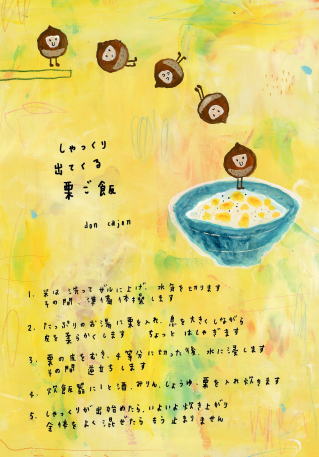 しゃっくり
出てくる
栗ご飯
don cajon
1. 栗は 洗って ザルに上げ、水気を切ります
その間、準備体操 します
2. たっぷりのお湯に 栗を入れ、息を大きくしながら
皮を柔らかくします ちょっと はしゃぎます
3. 栗の皮をむき、4等分に切った後、水に浸します
その間 逆立ち します
4. 炊飯器に 酒、みりん、しょうゆ、栗を入れ 炊きます
5. しゃっくりが出始めたら、いよいよ炊き上がり
全体を よく混ぜたら もう止まりません